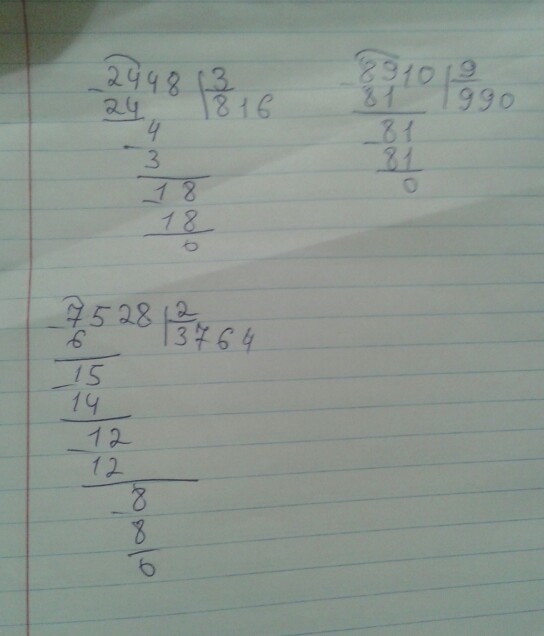 2448 | 3
24 816
4
3
18
18
0
8910 | 9
81 990
81
81
0
7528 | 2
6 3764
15
14
12
12
8
8
0